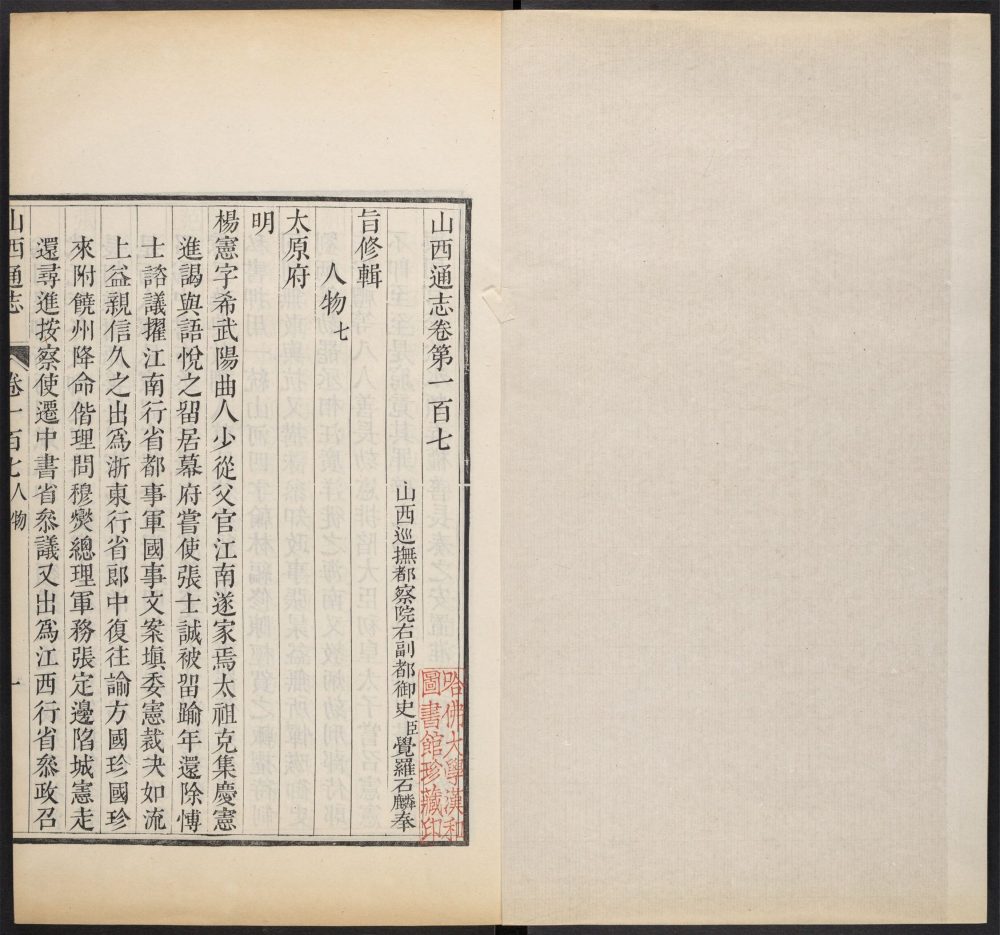 山西通志卷第一百七
山西巡撫都察院右副都御史臣覺羅石麟奉
旨修輯
人物七
太原府
明
楊憲字希武陽曲人少從父官江南遂家焉太祖克集慶憲
進謁與語悅之留居幕府嘗使張士誠被留踰年還除博
士諮議擢江南行省都事軍國事文案塡委憲裁決如流
上益親信久之出爲浙東行省郎中復往諭方國珍國珍
來附饒州降命偕理問穆燮總理軍務張定邊陷城憲走
還尋進按察使遷中書省叅議又出爲江西行省叅政召
山西通志
卷一百七人物
一
哈佛大學漢和
圖書館珍藏印